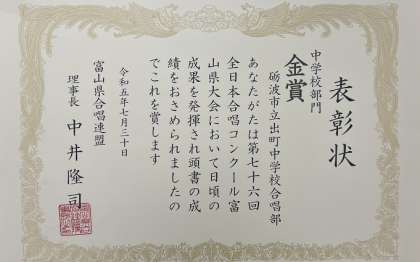 表彰状
中学校部門
金賞
砺波市立出町中学校合唱部
あなたがたは第七十六回
全日本合唱コンクール富
山県大会において日頃の
成果を発揮され頭書の成
績をおさめられましたの
でこれを賞します
令和五年七月三十日
富山県合唱連盟
理事長 中井隆司